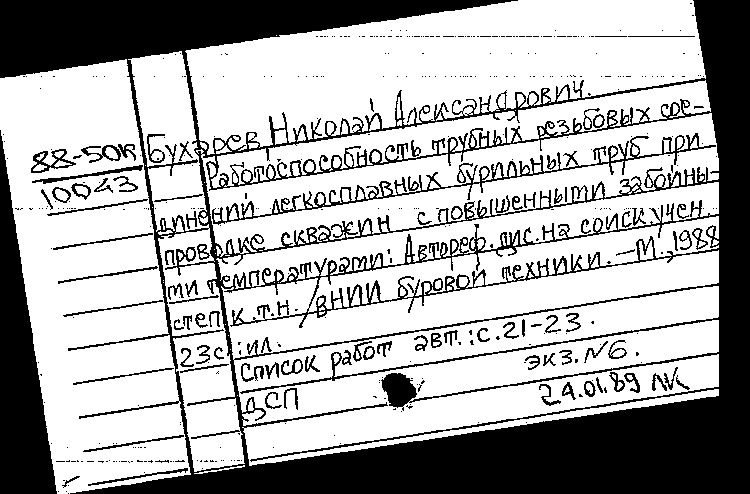 88-50к
10043
Бухарев, Николай Александрович.
Работоспособность трубных резьбовых сое-
динений легкосплавных бурильных труб при
проводке скважин с повышенными забойны-
ми температурами: Автореф. дис. на соиск. учен.
степ. к.т.н. /ВНИИ буровой техники. —М., 1988
23с.: ил.
Список работ авт.: с. 21-23.
экз. №6.
ДСП
24.01.89 ЛК